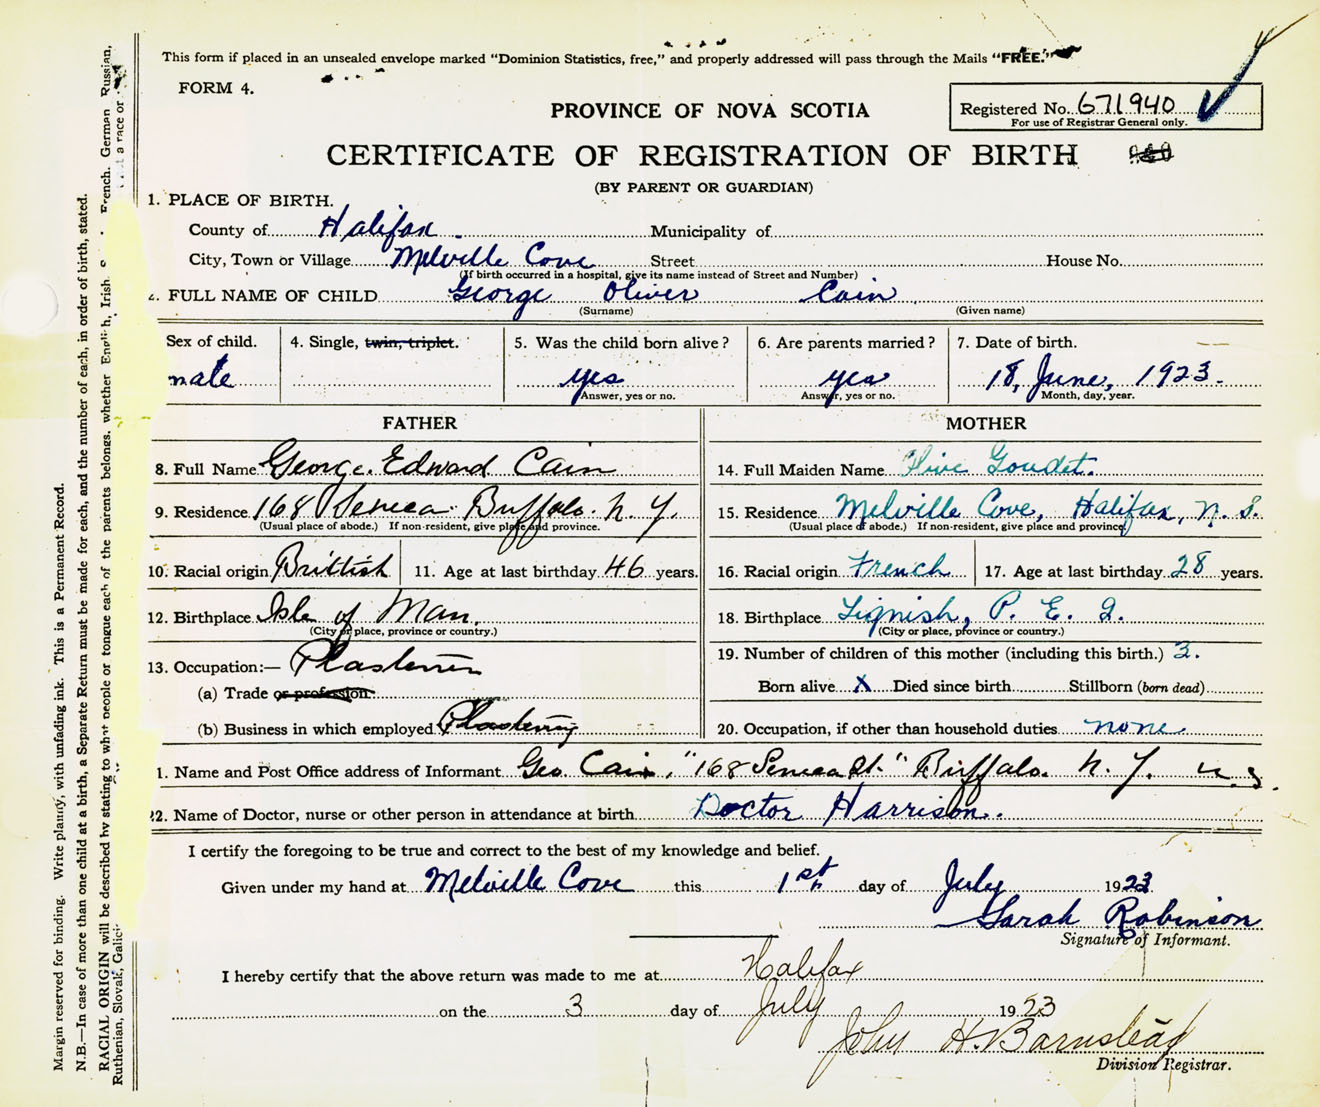 This form if placed in an unsealed envelope marked "Dominion Statistics, free," and properly addressed will pass through the Mails "FREE."
FORM 4.
PROVINCE OF NOVA SCOTIA
Registered No. 671940
For use of Registrar General only.
CERTIFICATE OF REGISTRATION OF BIRTH
(BY PARENT OR GUARDIAN)
1. PLACE OF BIRTH.
County of Halifax. Municipality of
City, Town or Village Melville Cove Street House No.
(If birth occurred in a hospital, give its name instead of Street and Number)
2. FULL NAME OF CHILD George Oliver Cain
(Surname) (Given name)
Sex of child. 4. Single, twin, triplet. 5. Was the child born alive? 6. Are parents married? 7. Date of birth.
male yes yes 18, June, 1923.
Answer, yes or no. Answer, yes or no. Month, day, year.
FATHER MOTHER
8. Full Name George Edward Cain 14. Full Maiden Name Olive Goudet.
9. Residence 168 Seneca Buffalo. N. Y. 15. Residence Melville Cove, Halifax, N. S.
(Usual place of abode.) If non-resident, give place and province. (Usual place of abode.) If non-resident, give place and province.
10. Racial origin Brittish 11. Age at last birthday 46 years. 16. Racial origin French 17. Age at last birthday 28 years.
12. Birthplace Isle of Man. 18. Birthplace Tignish, P. E. I.
(City or place, province or country.) (City or place, province or country.)
13. Occupation:— 19. Number of children of this mother (including this birth.) 3.
(a) Trade or profession Born alive X Died since birth Stillborn (born dead)
(b) Business in which employed Plastering 20. Occupation, if other than household duties none.
1. Name and Post Office address of Informant Geo. Cain, "168 Seneca St." Buffalo. N. Y. U.S.
22. Name of Doctor, nurse or other person in attendance at birth Doctor Harrison.
I certify the foregoing to be true and correct to the best of my knowledge and belief.
Given under my hand at Melville Cove this 1st day of July 1923
Sarah Robinson
Signature of Informant.
I hereby certify that the above return was made to me at Halifax
on the 3 day of July 1923
John H. Barnstead
Division Registrar.
Margin reserved for binding. Write plainly, with unfading ink. This is a Permanent Record.
N.B.—In case of more than one child at a birth, a Separate Return must be made for each, and the number of each, in order of birth, stated.
RACIAL ORIGIN will be described by stating to what people or tongue each of the parents belongs, whether English, Irish, French, German Russian,
Ruthenian, Slovak, Galici a race or